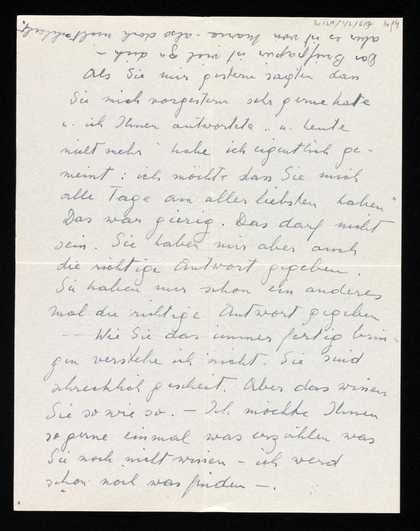 Als Sie mir gestern sagten dass
Sie mich vorgestern sehr gerne hatte
u. ich Ihnen antwortete „u. heute
nicht mehr" habe ich eigentlich ge-
meint: ich möchte dass Sie mich
alle Tage am aller liebsten haben"
Das war gierig. Das darf nicht
sein. Sie haben mir aber auch
die richtige Antwort gegeben.
Sie haben mir schon ein anderes
mal die richtige Antwort gegeben
— Wie Sie das immer fertig brin-
gen verstehe ich nicht. Sie sind
schrecklich gescheit. Aber das wissen
Sie so wie so. — Ich möchte Ihnen
so gerne einmal was erzählen was
Sie noch nicht wissen — ich werd
schon noch was finden —.
Das Briefpapier ist viel zu dick —
aber es ist von Mama - also doch nicht schlecht.